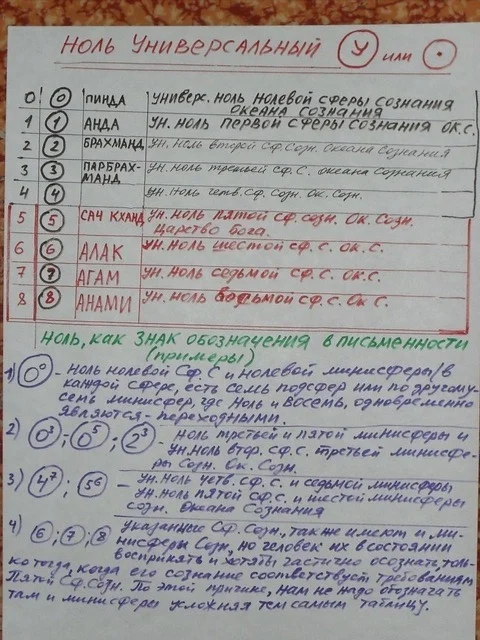 Ноль Универсальный (У) или (•)
0 (0) ПИНДА Универс. ноль нолевой сферы сознания
океана сознания
1 (1) АНДА Ун. ноль первой сферы сознания ок.с.
2 (2) БРАХМАНД Ун. ноль второй Сф. Созн. Океана Сознания
3 (3) ПАРБРАХ- Ун. ноль третьей сф. С. океана Сознания
МАНД
4 (4) Ун. ноль четв. Сф. Созн. Ок. Созн.
5 (5) САЧ КХАНД Ун. ноль пятой сф. созн. Ок. Созн.
Царство Бога.
6 (6) АЛАК Ун. ноль шестой сф. с. ок. с.
7 (7) АГАМ Ун. ноль седьмой сф. с. ок. с.
8 (8) АНАМИ Ун. ноль восьмой сф. с. ок с.
Ноль, как знак обозначения в письменности
(примеры)
1) (0⁰) - Ноль нолевой Сф. С и нолевой минисферы/в
каждой сфере, есть семь подсфер или по другому
семь минисфер, где ноль и восемь, одновременно
являются - переходными.
2) (0³); (0⁵); (2³) - ноль третьей и пятой минисферы и
Ун. ноль втор. сф. с. третьей минисфе-
ры Созн. Ок. Созн.
3) (4⁷); (5⁶) - Ун. ноль четв. сф. с. и седьмой минисферы
Ун. ноль пятой сф. с. и шестой минисферы
созн. Океана Сознания
4) (6); (7); (8) Указанные Сф. Созн., также имеют и ми-
нисферы Созн., но человек их в состоянии
восприять и хотябы частично осознать, толь-
ко тогда, когда его сознание соответствует требованиям
Пятой Сф. Созн. По этой причине, нам не надо обозначать
там и минисферы усложняя тем самым таблицу.